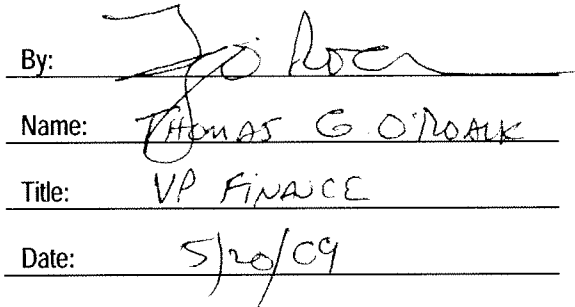 By:
Name: THOMAS G O'ROARK
Title: VP FINANCE
Date: 5/20/09